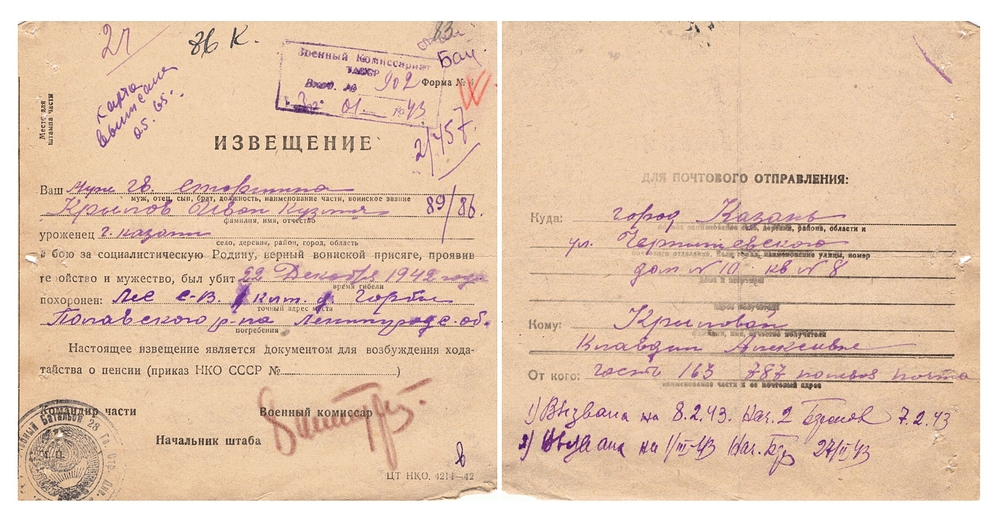 27
86 К.
83
Бау
карта
выписана
05.65г.
Военный Комиссариат
ТАССР
Вход. № 902
01 1943
Форма №
2/457
Место для
штампа части
ИЗВЕЩЕНИЕ
Ваш муж гв. старшина
муж, отец, сын, брат, должность, наименование части, воинское звание
Крылов Иван Кузмич 89/86.
фамилия, имя, отчество
уроженец г. Казани
село, деревня, район, город, область
в бою за социалистическую Родину, верный воинской присяге, проявив
ге ойство и мужество, был убит 22 Декабря 1942 года
время гибели
похоронен: Лес С-В. 1 клм. д. Горбы
точный адрес места
Полавского р-на Ленинградс. об.
погребения
Настоящее извещение является документом для возбуждения хода-
тайства о пенсии (приказ НКО СССР № )
Командир части Военный комиссар
Начальник штаба
8
ЦТ НКО. 4214—42
ДЛЯ ПОЧТОВОГО ОТПРАВЛЕНИЯ:
Куда: город Казань
наименование село, деревня, района, области и
ул. Чернышевского
почтового отделения, наименование улицы, номер
дом № 10 кв № 8
дома и квартиры
Кому: Крыловой
фамилия, имя, отчество получателя
Клавдии Алексевне
От кого: часть 163 787 полевая почта
наименование части и ее почтовый адрес
1) Вызвана на 8.2.43. Нач. 2 7.2.43
2) Вызвана на 1/III-43 Нач. 27/II 43